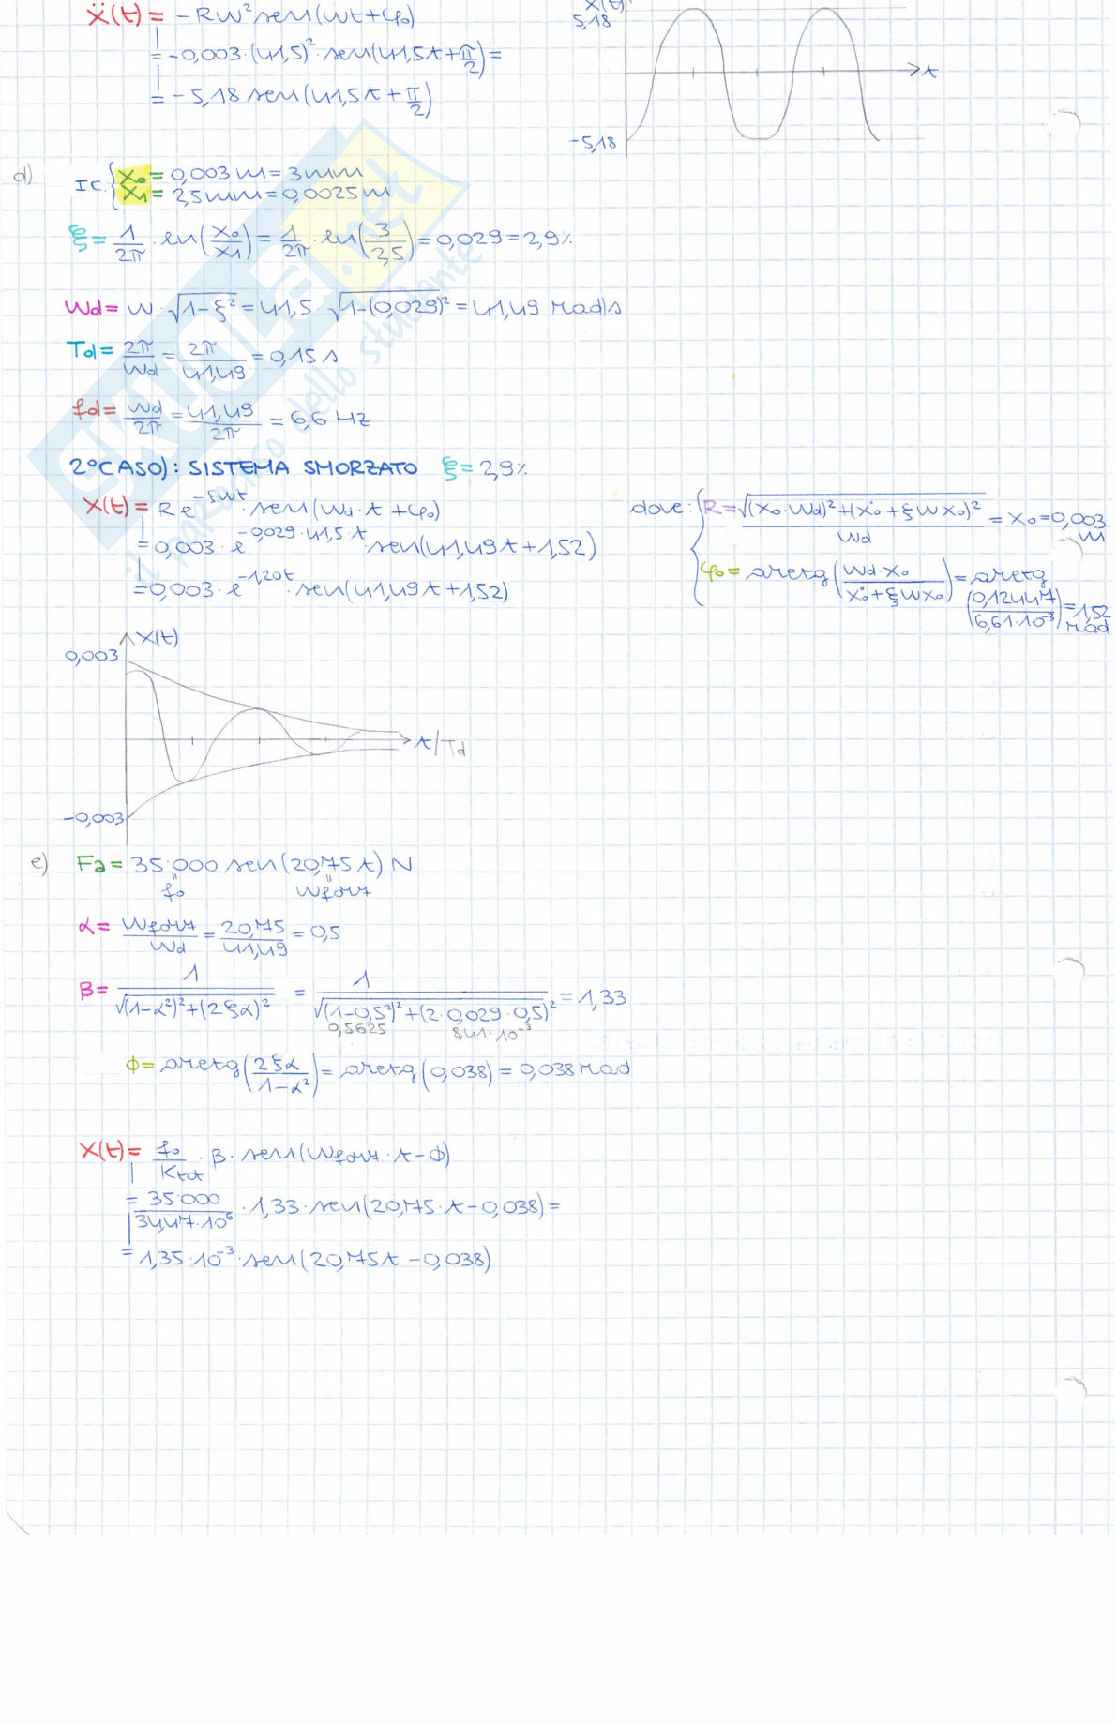 Ẍ(t) = -Rω² sen(ωt+φ₀)
= -0,003·(41,5)²·sen(41,5t+π/2) =
= -5,18 sen(41,5t+π/2)
Ẍ(t)
5,18
t
-5,18
d) IC: { X₀ = 0,003 m = 3mm
X₁ = 2,5mm = 0,0025 m
ξ = 1/2π · ln(X₀/X₁) = 1/2π · ln(3/2,5) = 0,029 = 2,9%
Wd = W·√(1-ξ²) = 41,5·√(1-(0,029)²) = 41,49 rad/s
Td = 2π/Wd = 2π/41,49 = 0,15 s
fd = Wd/2π = 41,49/2π = 6,6 Hz
2°CASO): SISTEMA SMORZATO ξ = 2,9%
X(t) = R e^(-ξωt)·sen(Wd·t+φ₀)
= 0,003·e^(-0,029·41,5 t)·sen(41,49t+1,52)
= 0,003·e^(-1,20t)·sen(41,49t+1,52)
dove: { R = √((X₀·Wd)²+(Ẋ₀+ξWX₀)²)/Wd = X₀ = 0,003 m
φ₀ = arctg(Wd·X₀/(Ẋ₀+ξWX₀)) = arctg(0,12447/3,61·10⁻³) = 1,52 rad
X(t)
0,003
t/Td
-0,003
e) Fa = 35·000 sen(20,75t) N
f₀ Wforz
α = Wforz/Wd = 20,75/41,49 = 0,5
β = 1/√((1-α²)²+(2ξα)²) = 1/√((1-0,5²)²+(2·0,029·0,5)²) = 1,33
0,5625 841·10⁻³
ϕ = arctg(2ξα/(1-α²)) = arctg(0,038) = 0,038 rad
X(t) = f₀/Ktot·β·sen(Wforz·t-ϕ)
= 35·000/34,47·10⁶·1,33·sen(20,75·t-0,038) =
= 1,35·10⁻³·sen(20,75t-0,038)